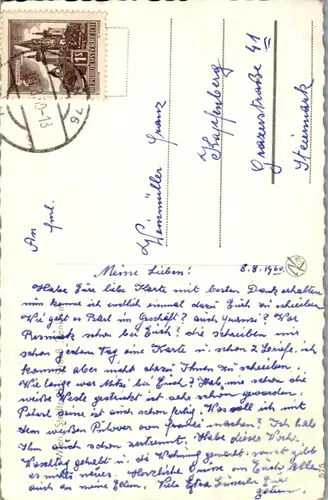 1 S
REPUBLIK ÖSTERREICH
76
An
Fml.
Leinmüller Franz
Kapfenberg
Grazerstraße 41
Steiermark
Meine Lieben! 8.8.1960.
Habe Eure liebe Karte mit besten Dank erhalten
nun komme ich endlich einmal dazu Euch zu schreiben
Wie geht es Peterl im Geschäft? auch gut? War
schon bei Euch? die schreiben mir
schon jeden Tag eine Karte u. schon 2 Briefe, ich
komme aber nicht dazu Ihnen zu schreiben.
Wie lange war bei Euch? Hab mir schon die
weiße Weste gestrickt ist sehr schön geworden.
Peterl seine ist auch schon fertig. Was soll ich mit
dem weißen Pulover von machen? Ich hab
Ihn auch schon zertrennt. Habe diese Woche
Waschtag gehabt u. die Wohnung gemacht, sonst gibt
es nichts neues. Herzliche Grüsse an Euch alle
auch an meine Eltern.